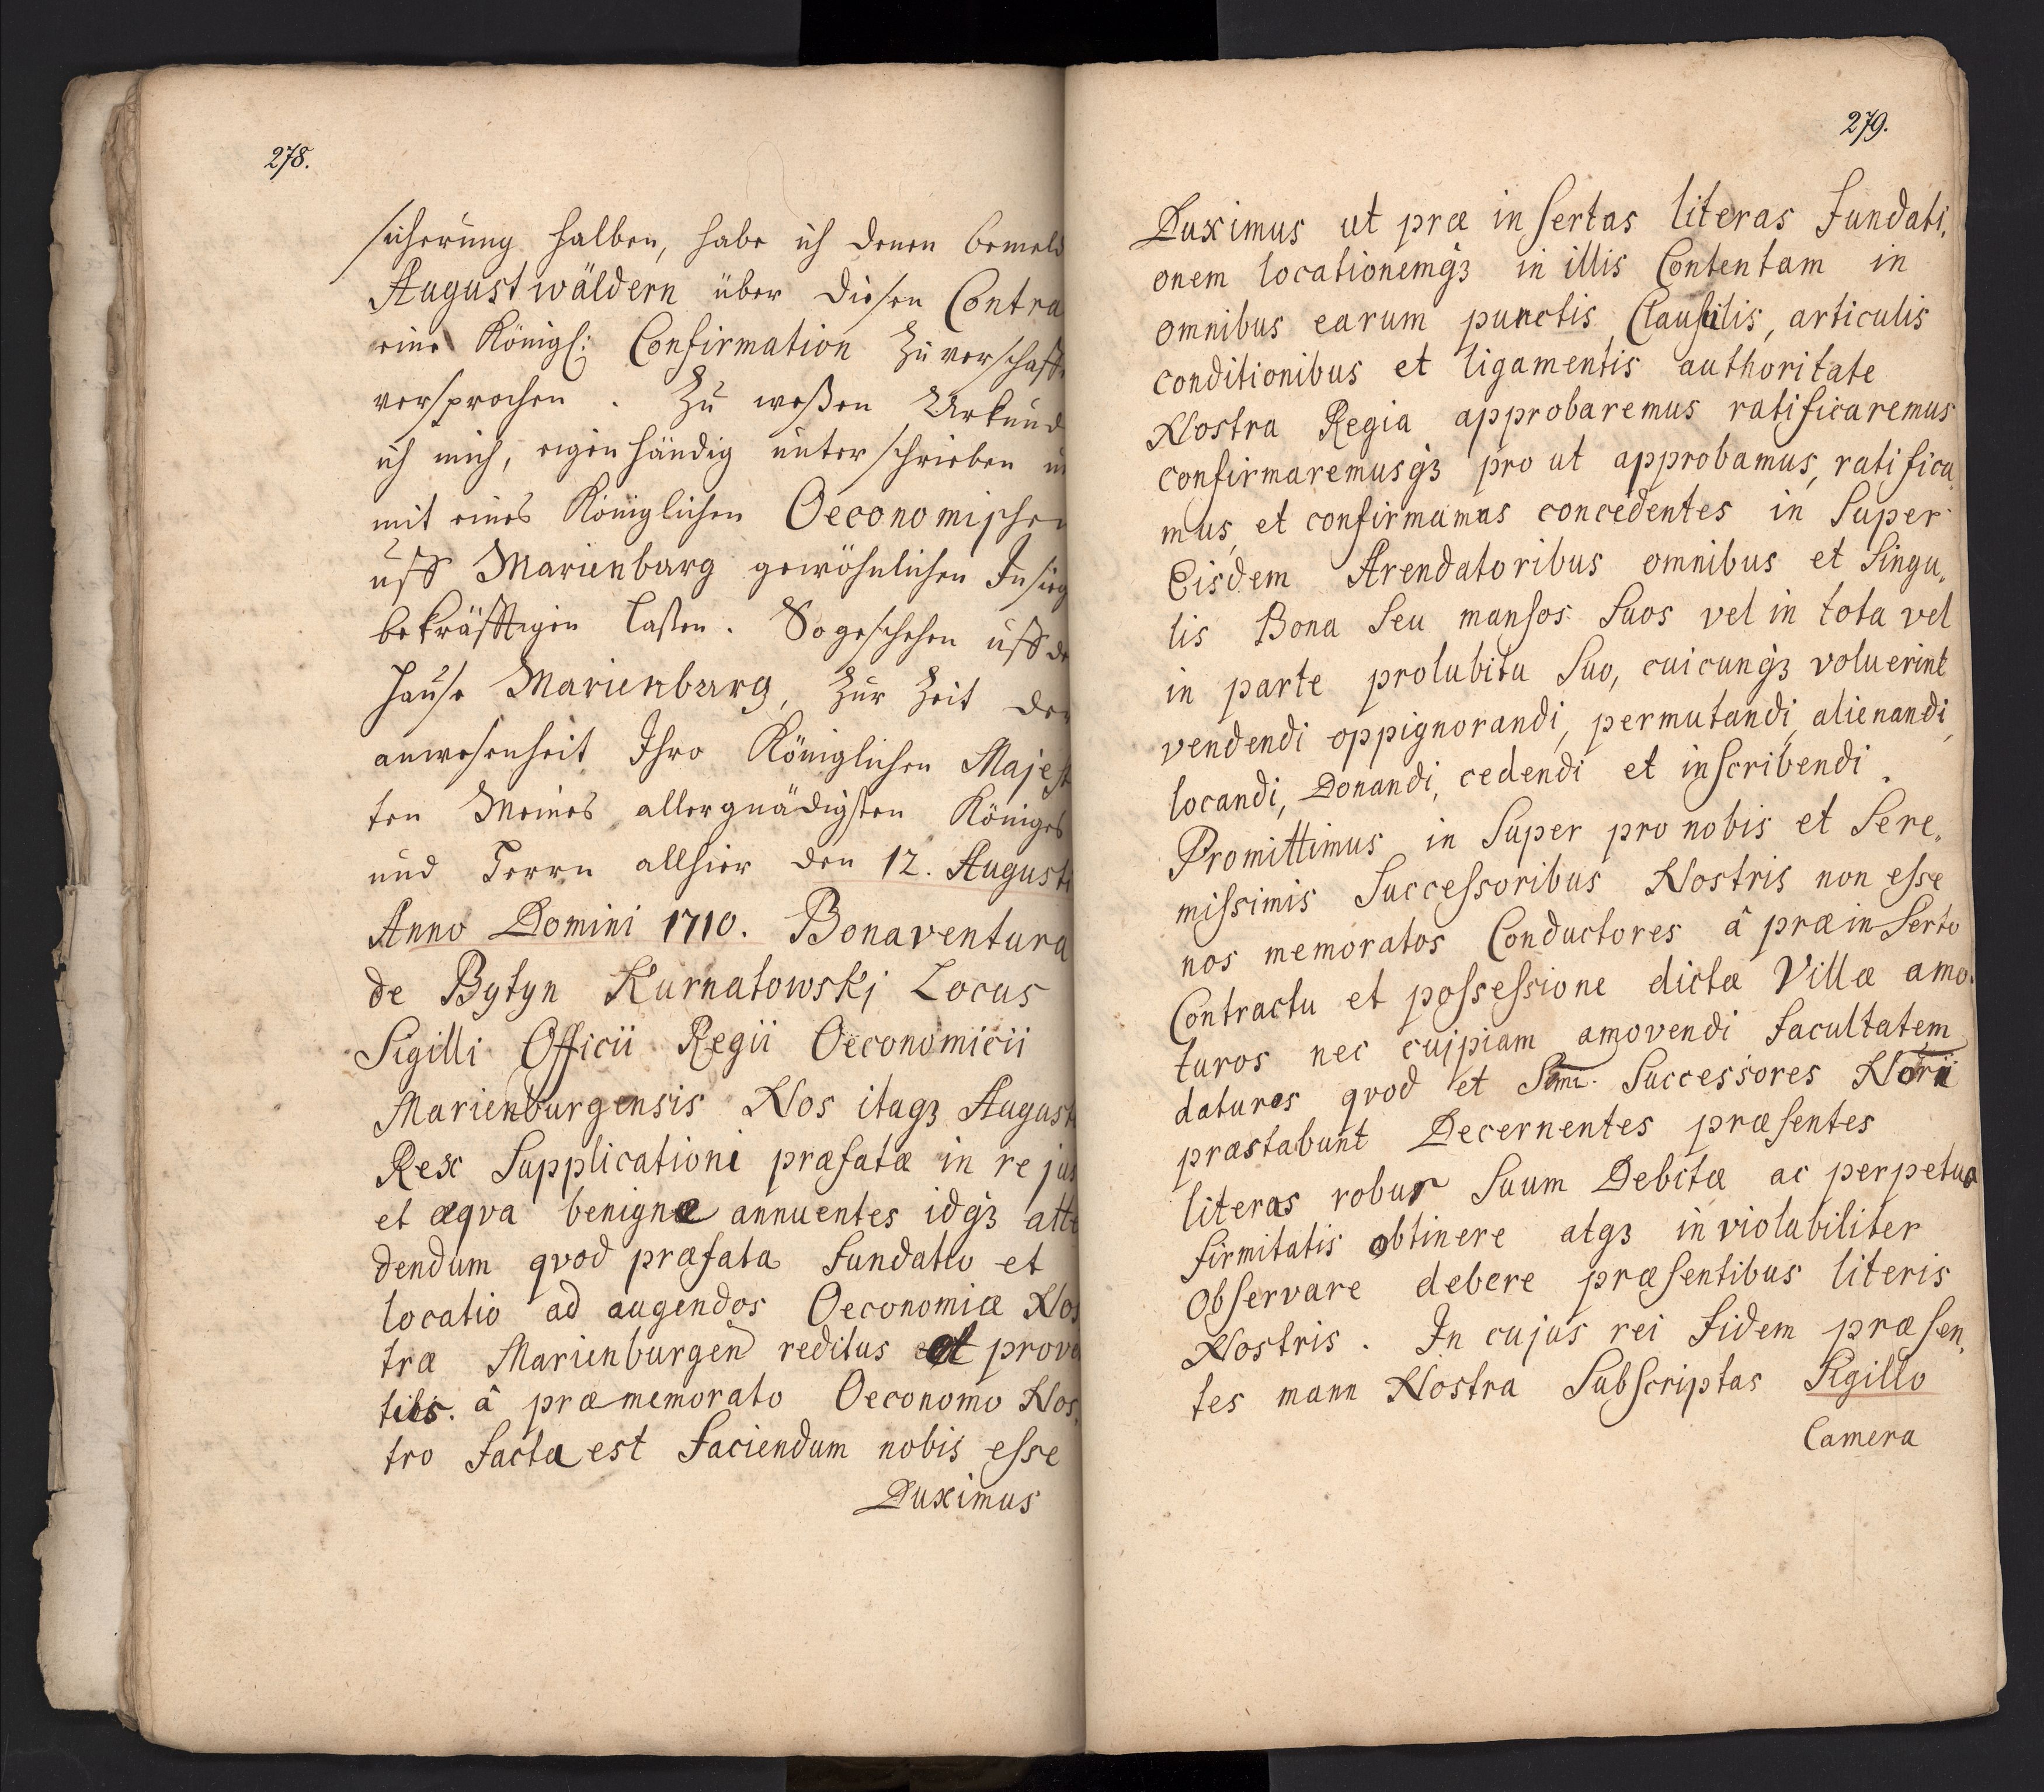 278.
sicherung halben, habe ich denen bemeld
Augustwäldern über diesen Contra
eine Königl: Confirmation zu verschaff
versprochen. Zu weßen Urkund
ich mich, eigenhändig unterschrieben u
mit eines Königlichen Oeconomischen
uff Marienburg gewöhnlichen Insieg
bekräfftigen laßen. So geschehen uff de
Hause Marienburg, Zur Zeit der
anwesenheit Ihro Königlichen Majest
ten Meines allergnädigsten Königes
und Herrn allhier den 12. Augusti
Anno Domini 1710. Bonaventura
de Bytyn Kurnatowskj Locus
Sigilli Officii Regii Oeconomicii
Marienburgensis Nos itaqȝ August
Rex Supplicationi præfatæ in re jus
et æqva benignæ annuentes idqȝ atte
dendum qvod præfata fundatio et
locatio ad augendos Oeconomiæ Nos
træ Marienburgen reditus et prove
tibs. â præmemorato Oeconomo Nos,
tro facta est faciendum nobis esse
Duximus
279.
Duximus ut præ insertas literas fundati,
onem locationemqȝ in illis Contentam in
omnibus earum punctis, Clausulis, articulis
conditionibus et ligamentis authoritate
Nostra Regia approbaremus ratificaremus
confirmaremusqȝ pro ut approbamus, ratifica,
mus, et confirmamus concedentes in Super
Eisdem Arendatoribus omnibus et Singu,
lis Bona Seu mansos Suos vel in tota vel
in parte prolubitu Suo, cuicunqȝ voluerint
vendendi oppignorandi, permutandi, alienandi,
locandi, Donandi, cedendi et inscribendi.
Promittimus in Super pro nobis et Sere,
nissimis Successoribus Nostris non esse
nos memoratos Conductores â præinserto
Contractu et possessione dictæ Villæ amo,
turos nec cuipiam amovendi facultatem
daturos qvod et Smi. Successores Notrii
præstabunt Decernentes præsentes
literas robur Suum Debitæ ac perpetuæ
firmitatis obtinere atqȝ inviolabiliter
Observare debere præsentibus literis
Nostris. In cujus rei fidem præsen,
tes mann Nostra Subscriptas Sigillo
Camera